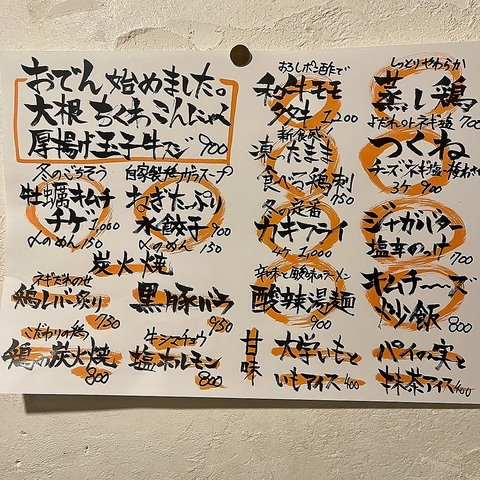 おでん始めました。
大根 ちくわ こんにゃく
厚揚げ 玉子 牛スジ 900
冬のごちそう
牡蠣キムチ
チゲ 1,000
〆のめん 150
自家製鶏ガラスープ
ねぎたっぷり
水餃子 900
〆のめん 150
炭火焼
ネギだれのせ
鶏レバー炙り
750
黒豚バラ
950
こだわりの鶏
鶏の炭火焼
800
牛シマチョウ
塩ホルモン
800
おろしポン酢で
和牛モモ
タタキ 1,200
新食感!
凍ったまま
食べる鶏刺
750
冬の定番
カキフライ
4ケ 1,000
辛味と酸味のラーメン
酸辣湯麺
900
甘味
大学いもと
いもアイス 400
しっとりやわらか
蒸し鶏
よだれorネギ塩 700
つくね
チーズ・ネギ塩
3ケ 900
ジャガバター
塩辛のっけ 700
キムチーズ
炒飯 800
パイの実と
抹茶アイス 400